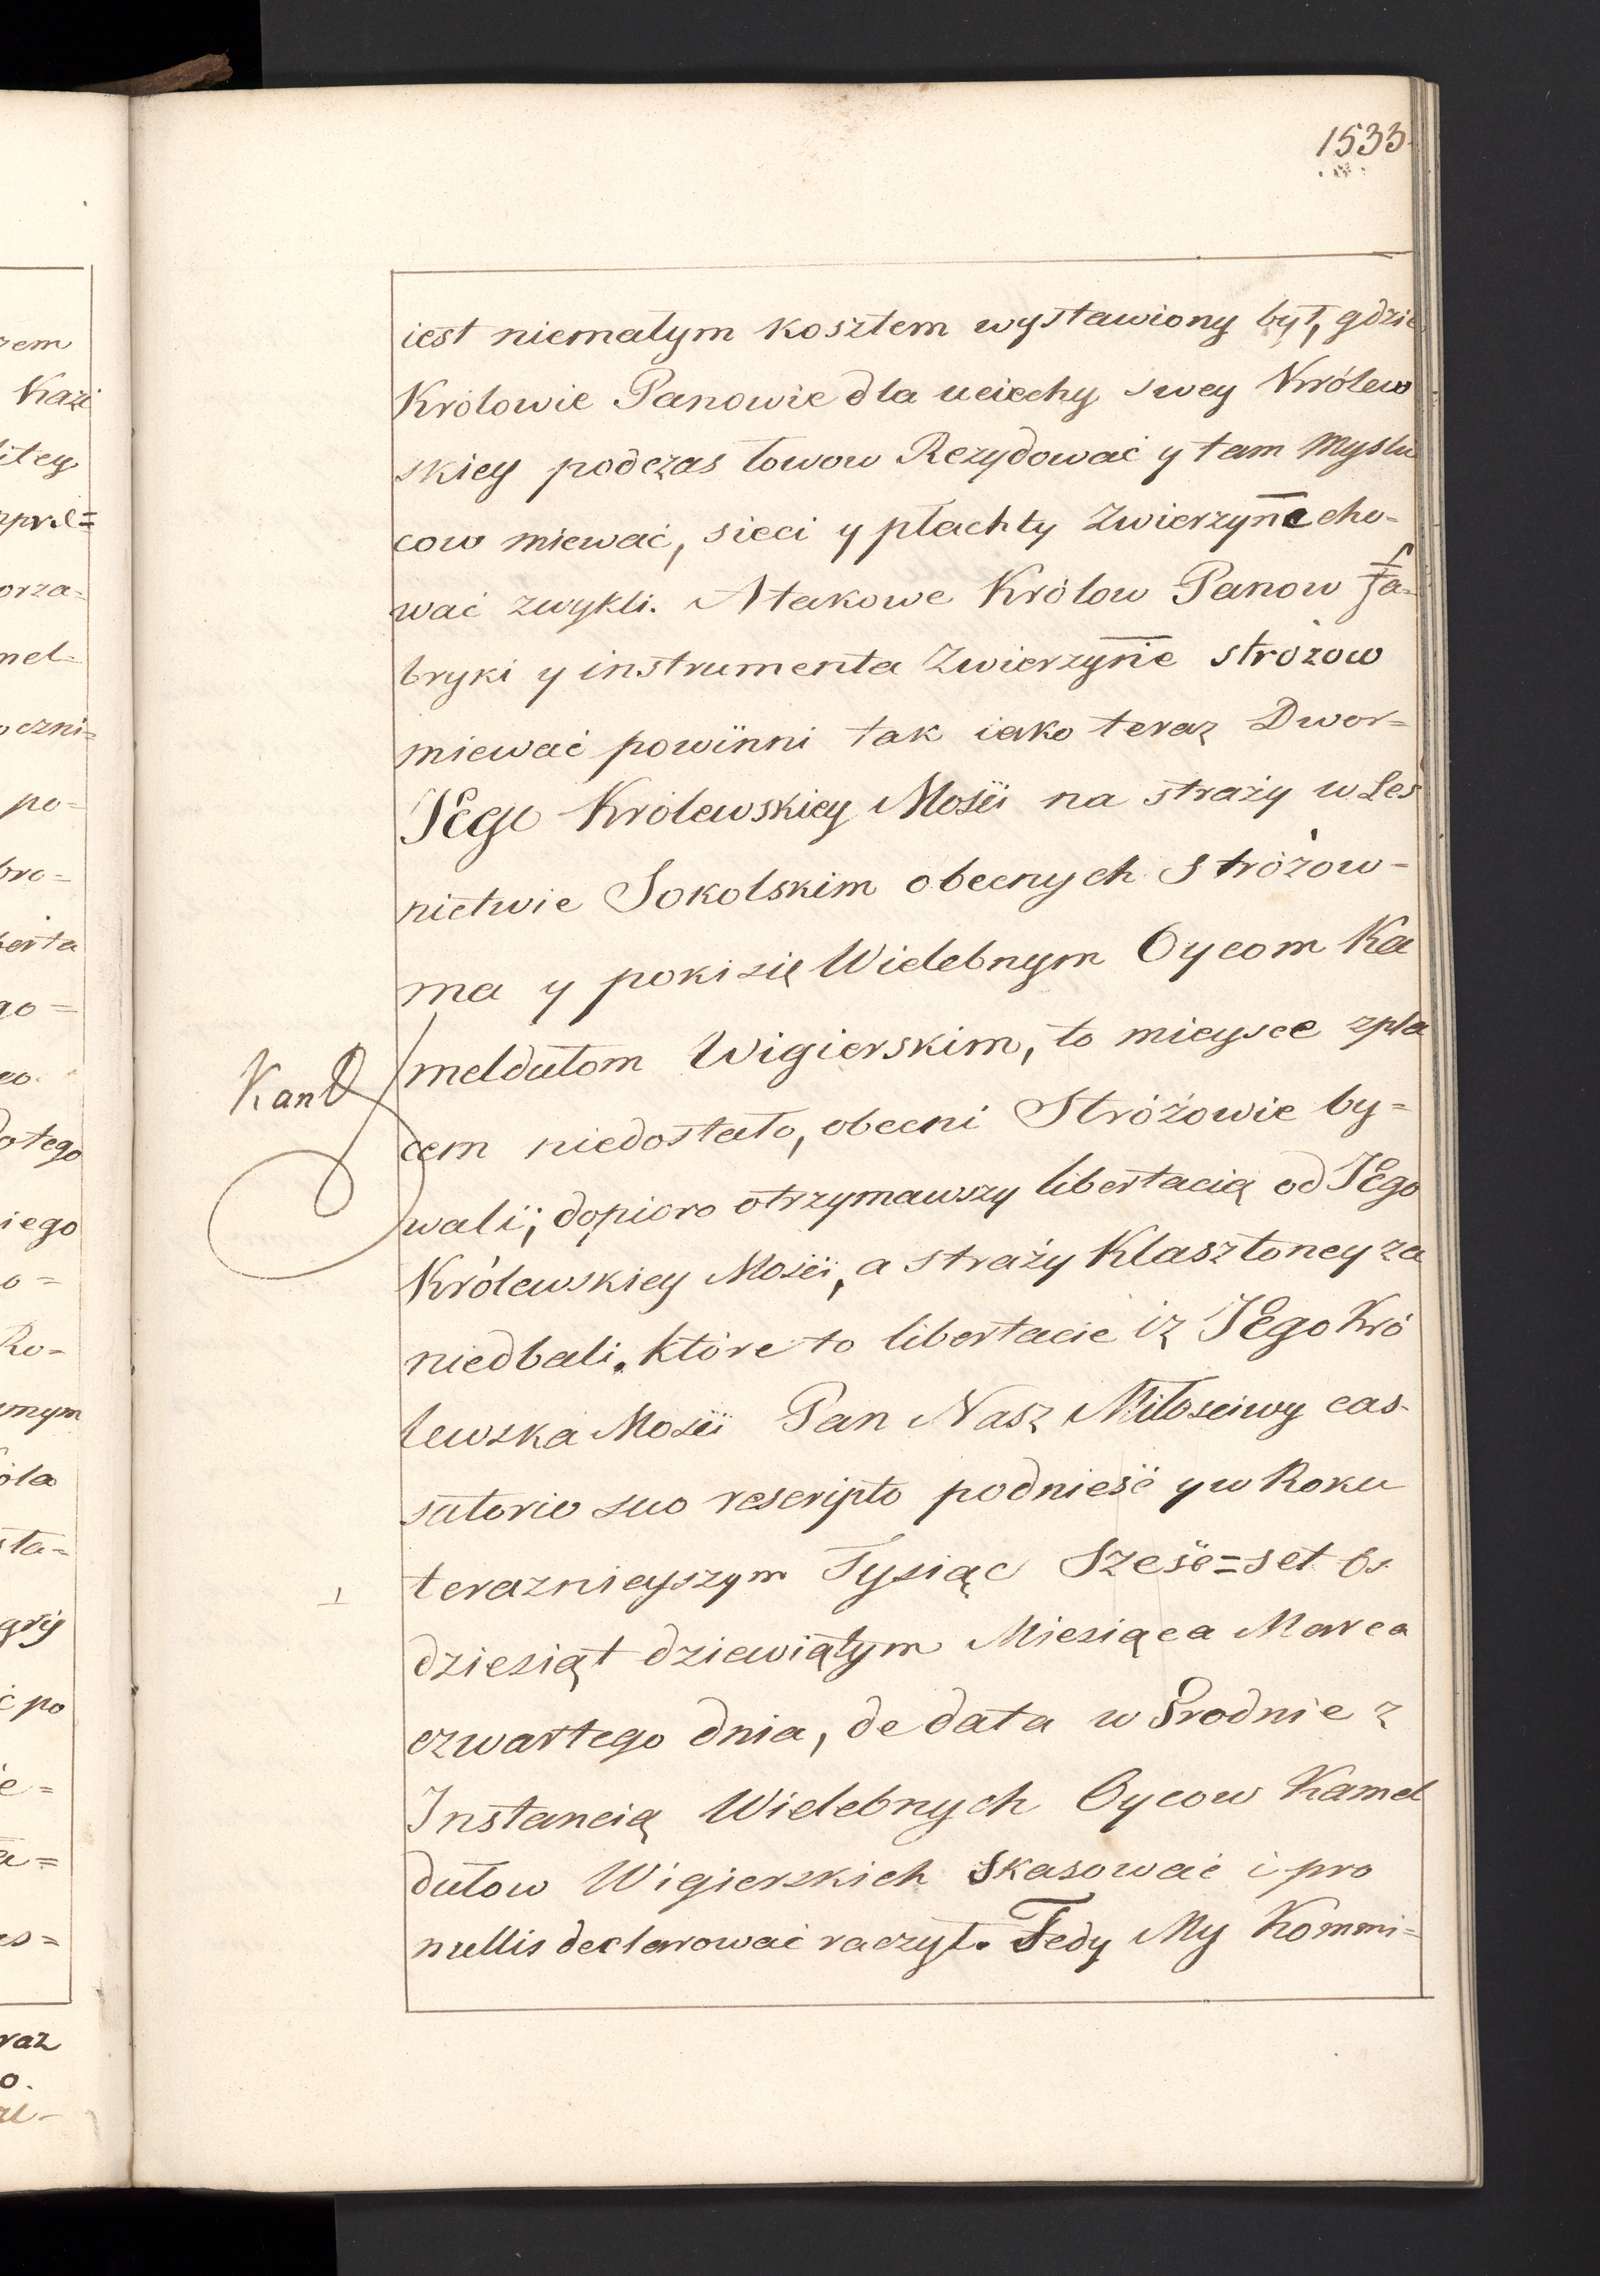 1533.
iest niemałym kosztem wystawiony był, gdzie
Krolowie Panowie dla uciechy swey Królew
skiey podczas łowow Rezydować y tam Mysliw
cow miewać, sieci y płachty Zwierzyne cho-
wać zwykli. A takowe Królow Panow Fa-
bryki y instrumenta Zwierzyne strożow
miewać powinni tak iako teraz Dwor-
JEgo Krolewskiey Mosii na straży w Les
nictwie Sokolskim obecnych Stróżow-
ma y poki się Wielebnym Oycom Ka
meldułom Wigierskim, to mieysce z pla
cem niedostało, obecni Stróżowie by-
wali; dopioro otrzymawszy libertacią od JEgo
Królewskiey Mosii, a straży Klasztoney za
niedbali. które to libertacie iż JEgo Kró
lewska Mosii Pan Nasz Miłosciwy cas-
satorio suo rescripto podnieść y w Roku
teraznieyszym Tysiąc Sześć=set Os
dziesiąt dziewiątym Miesiąca Marca
czwartego dnia, de data w Grodnie z
Instancią Wielebnych Oycow Kamel
dułow Wigierskich skasować i pro
nullis declarować raczył. Tedy My Kommi=
rem
Kazi
litey
orza-
mel-
oczni=
po-
bro=
berta
go=
dotego
iego
o=
Ro-
wnym
sta-
po
raz
o.